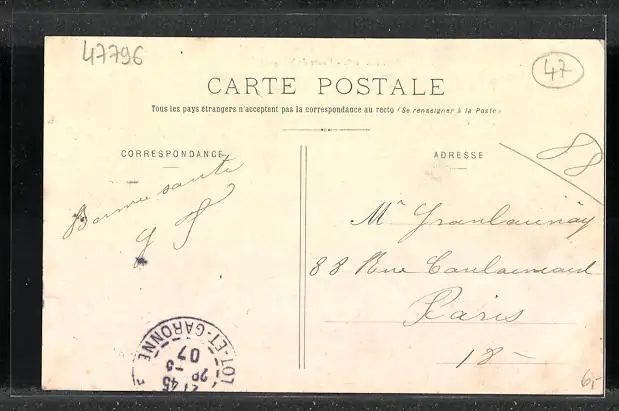 47796
47
CARTE POSTALE
Tous les pays étrangers n'acceptent pas la correspondance au recto (Se renseigner à la Poste)
CORRESPONDANCE
Bonne santé
ADRESSE
88
Mr Granlaunay
88 Rue Caulaincourt
Paris
18-
LOT-ET-GARONNE
21 45
28 -3
07
6,-